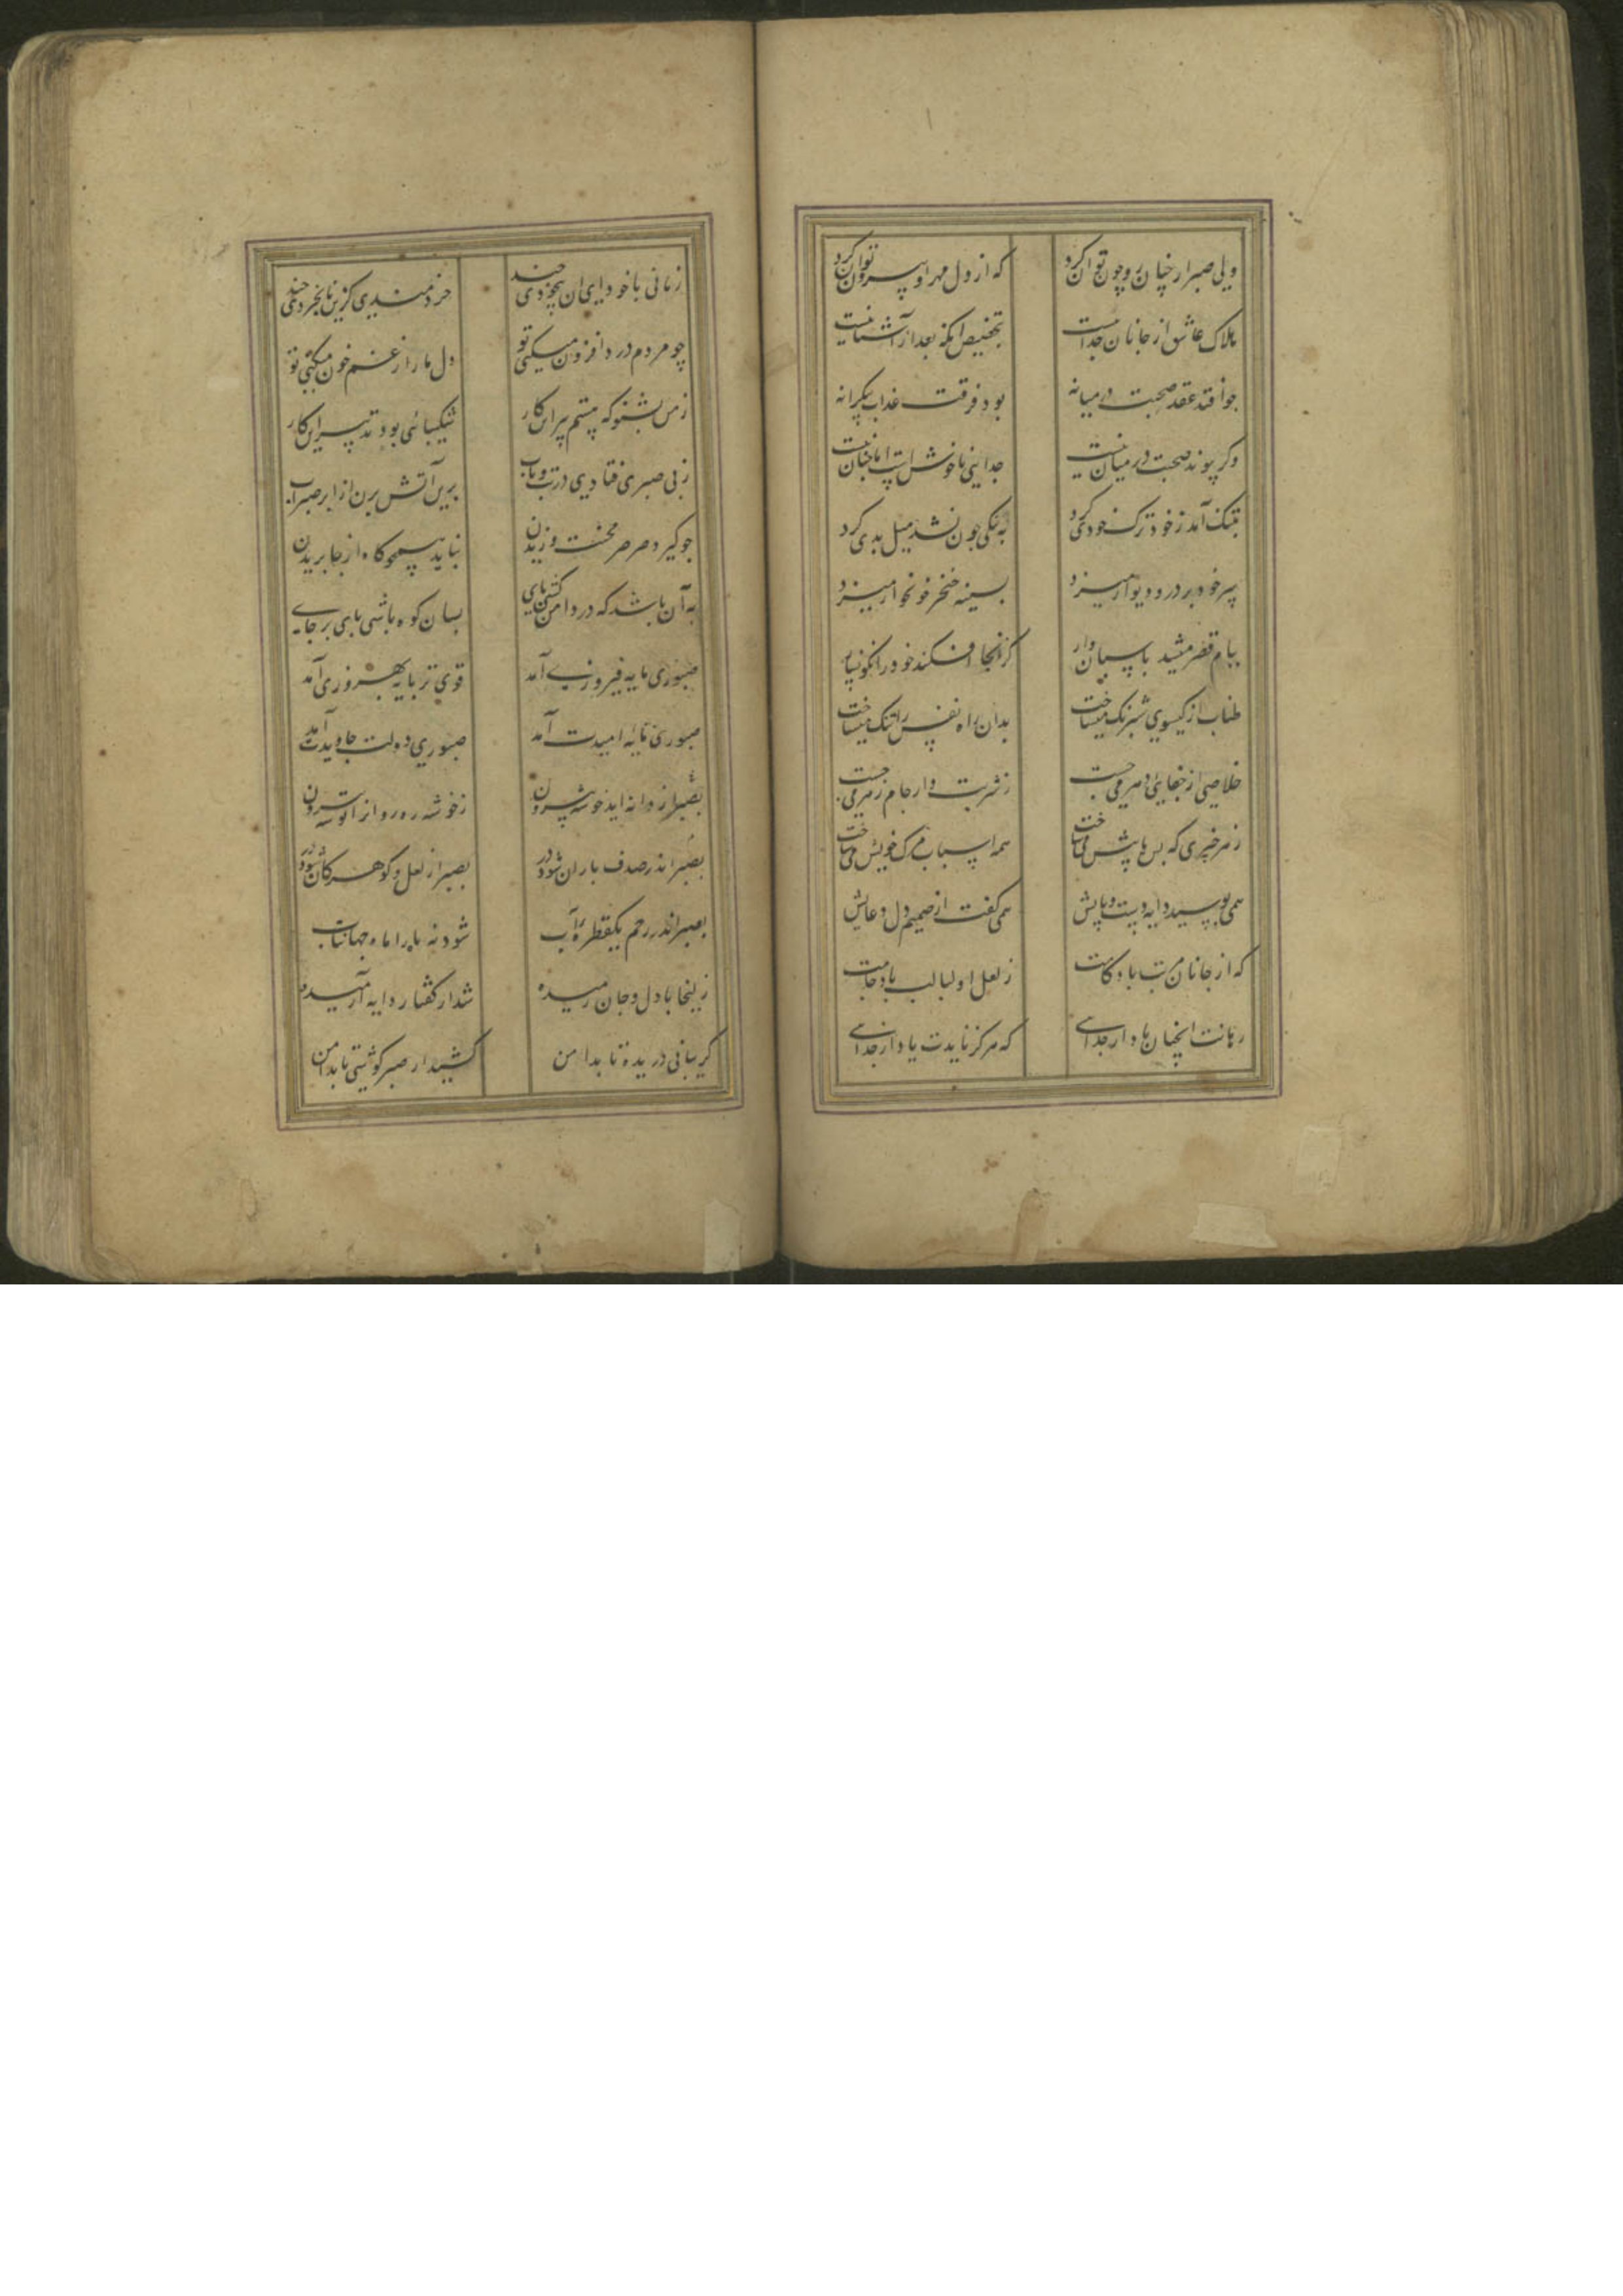 ولی صبر از چنان رو چون توان کرد
که از دل مهر او بیرون توان کرد
هلاک عاشق از جانان جداییست
بتخصیص آنکه بعد از آشناییست
جو افتد عقد صحبت در میانه
بود فرقت عذاب بیکرانه
وکر پیوند صحبت در میان نیست
جدایی ناخوش است اما چنان نیست
بتنک آمد ز خود ترک خودی کرد
به نیکی جون نشد میل بدی کرد
سر خود بر در و دیوار میزد
بسینه خنجر خونخوار میزد
ببام قصر میشد پاسبان وار
کز آنجا افکند خود را نکونسار
طناب از کیسوی شبرنک میساخت
بدان راه نفس را تنک میساخت
خلاصی از جفای دهر می جست
ز شربت دار جام زهر می جست
ز هر چیزی که بس پیش می ساخت
همه اسباب مرک خویش می ساخت
همی بوسید دایه دست و پایش
همی کفت از صمیم دل دعایش
که از جانان مرتب باد کامت
ز لعل او لبالب باد جامت
رهانت اینچنان باد از جدایی
که هرکز نایدت یاد از جدایی
زمانی با خود آی این بیخودی چند
خردمندی کزین نابخردی چند
چو مردم درد افزون میکنی تو
دل ما را ز غم خون میکنی تو
ز من بشنو که هستم پیر این کار
شکیبائی بود تدبیر این کار
ز بی صبری فتادی در تب و تاب
برین آتش بزن از ابر صبر آب
جو کیرد صرصر محنت وزیدن
نباید همچو کاه از جا پریدن
به آن باشد که در دامن کشی پای
بسان کوه باشی پای بر جای
صبوری مایه فیروزی آمد
قوی تر پایه بهروزی آمد
صبوری مایه امیدت آمد
صبوری دولت جاویدت آمد
بصبر از دانه آید خوشه بیرون
ز خوشه ره روانرا توشه بیرون
بصبر اندر صدف باران شود در
بصبر از لعل و کوهر کان شود پر
بصبر اندر رحم یکقطره آب
شود نه ماه را ماه جهانتاب
زلیخا با دل و جان رمیده
شد از کفتار دایه آرمیده
کریبانی دریده تا بدامن
کشید از صبر کوشی تا بدامن